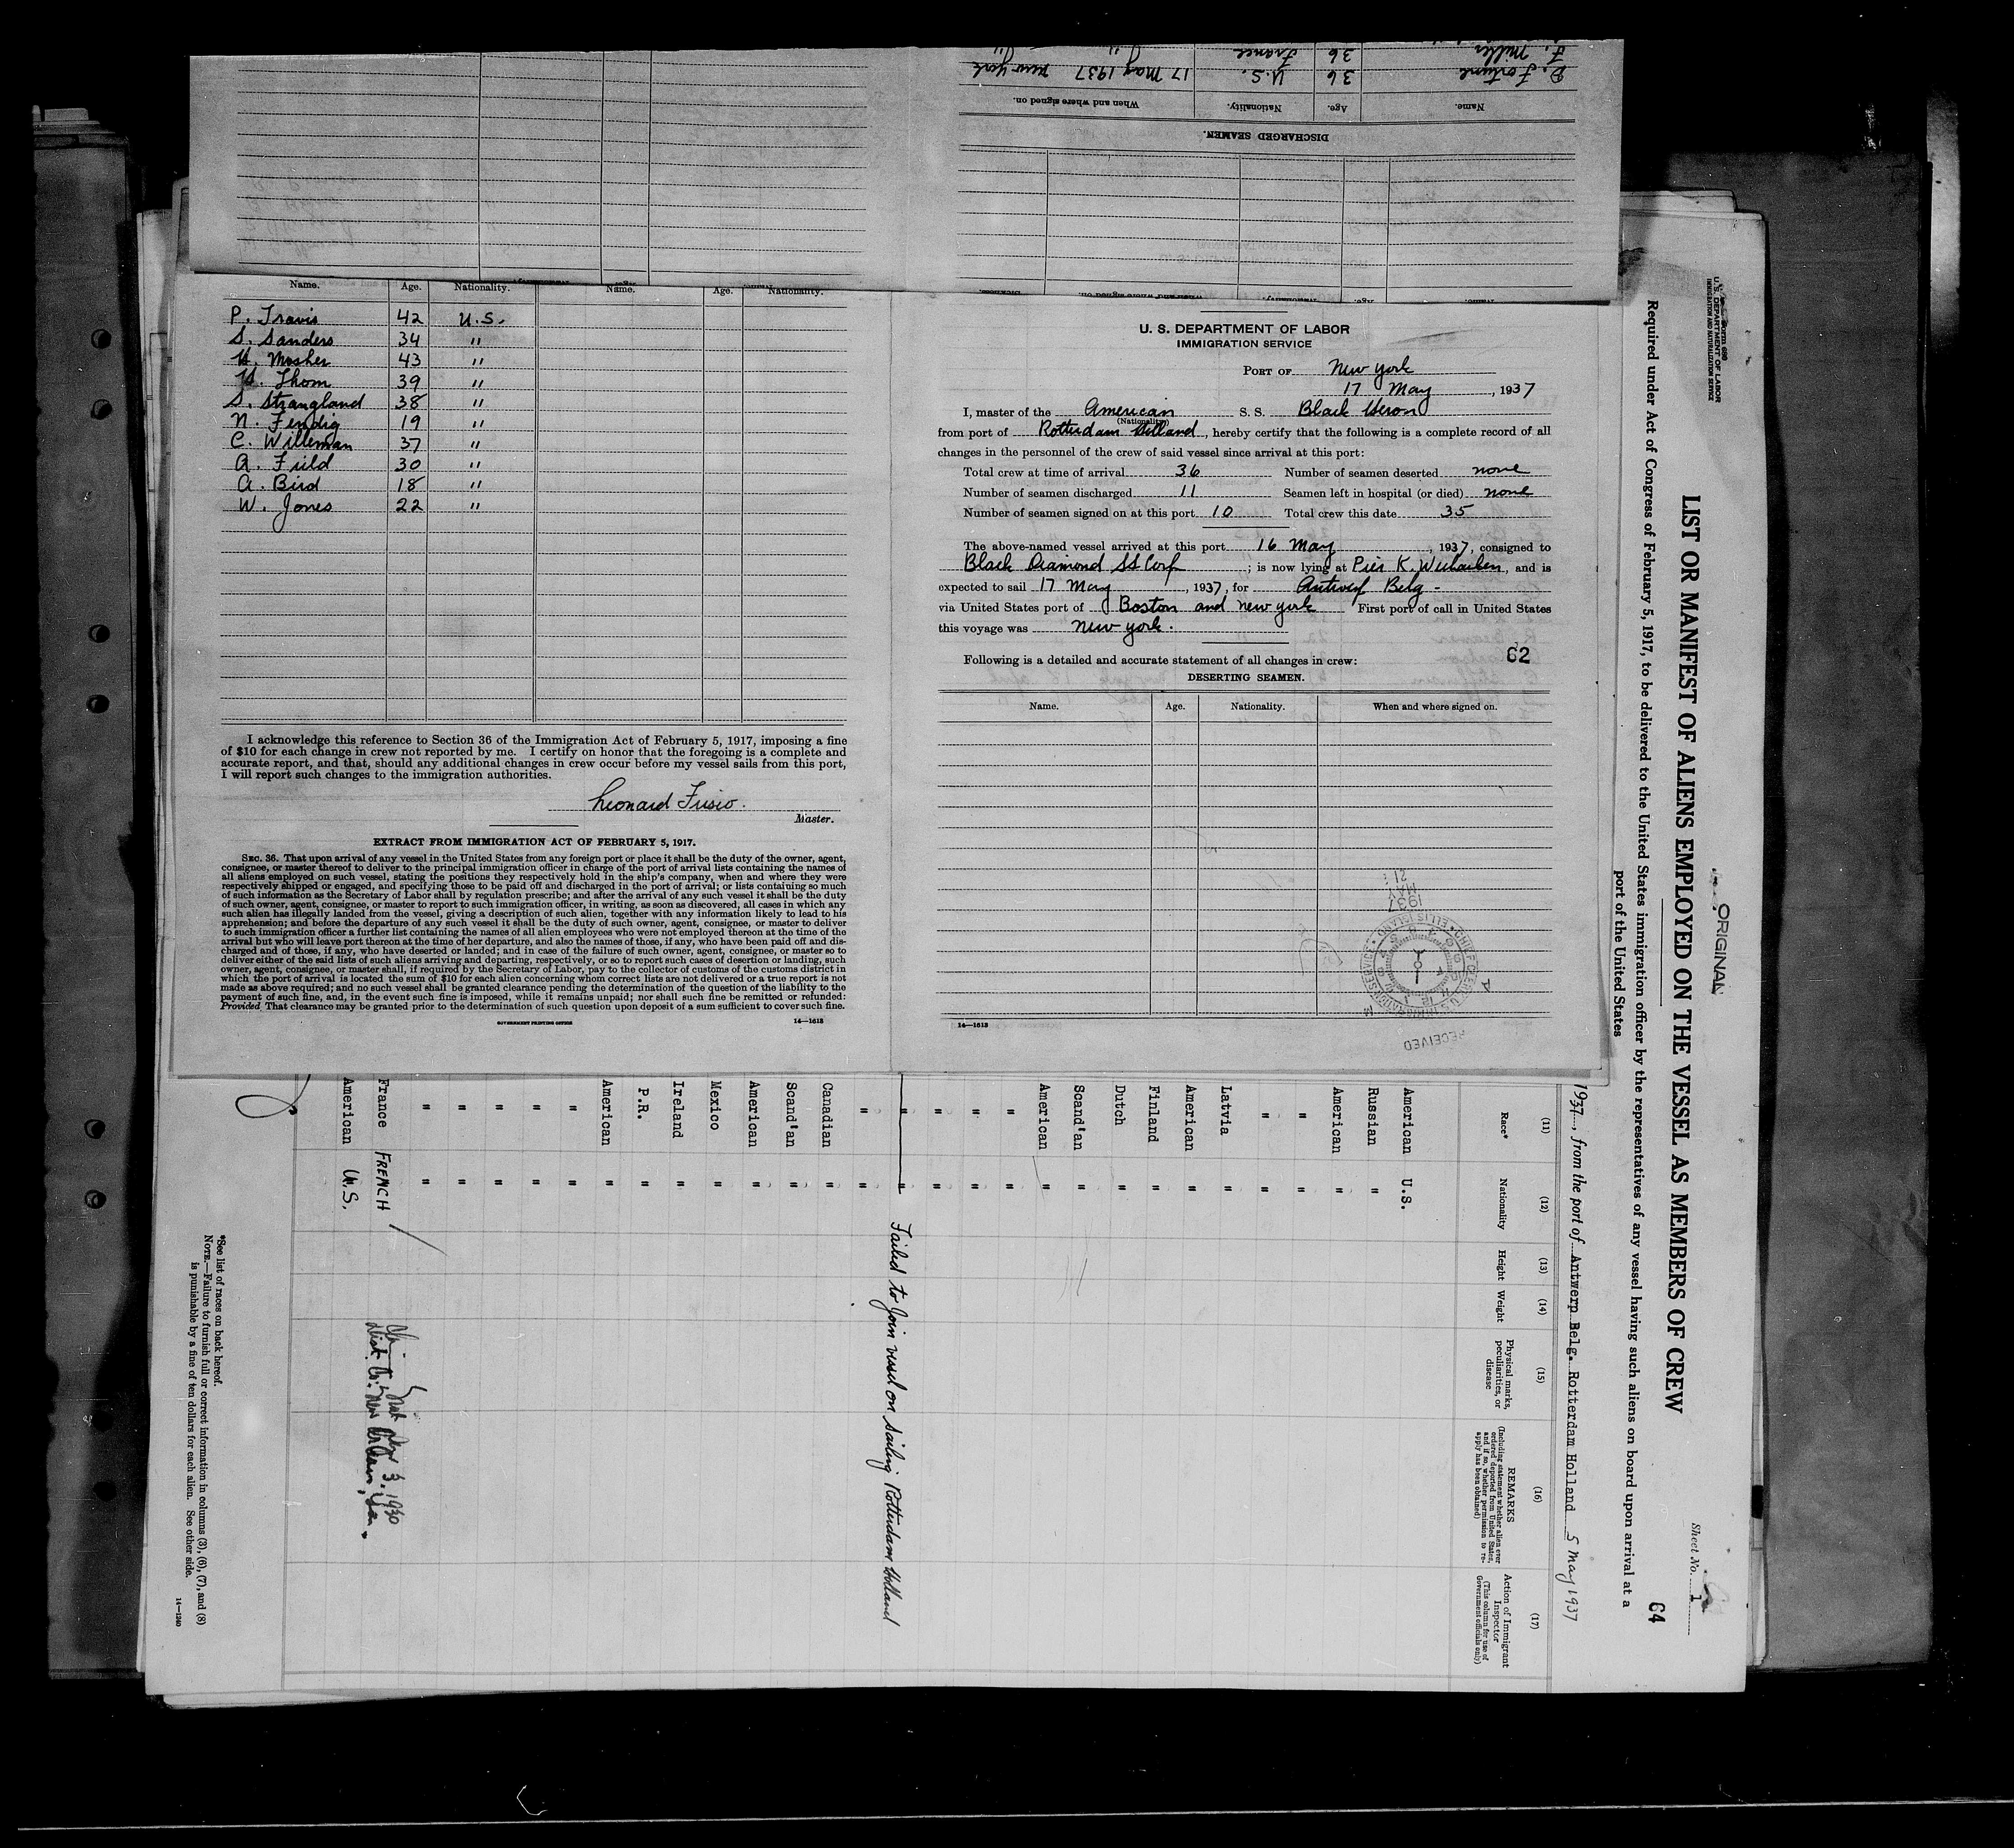 F. Miller 36 France "
D. Fortune 36 U.S. 17 May 1937 New York
Name. Age. Nationality. When and where signed on.
DISCHARGED SEAMEN.
Name. Age. Nationality. Name. Age. Nationality.
P. Travis 42 U.S.
S. Sanders 34 "
H. Mosher 43 "
H. Thom 39 "
S. Strangland 38 "
N. Fendig 19 "
C. Willeman 37 "
A. Fuld 30 "
A. Bird 18 "
W. Jones 22 "
I acknowledge this reference to Section 36 of the Immigration Act of February 5, 1917, imposing a fine
of $10 for each change in crew not reported by me. I certify on honor that the foregoing is a complete and
accurate report, and that, should any additional changes in crew occur before my vessel sails from this port,
I will report such changes to the immigration authorities.
Leonard Fusio.
Master.
EXTRACT FROM IMMIGRATION ACT OF FEBRUARY 5, 1917.
SEC. 36. That upon arrival of any vessel in the United States from any foreign port or place it shall be the duty of the owner, agent,
consignee, or master thereof to deliver to the principal immigration officer in charge of the port of arrival lists containing the names of
all aliens employed on such vessel, stating the positions they respectively hold in the ship's company, when and where they were
respectively shipped or engaged, and specifying those to be paid off and discharged in the port of arrival; or lists containing so much
of such information as the Secretary of Labor shall by regulation prescribe; and after the arrival of any such vessel it shall be the duty
of such owner, agent, consignee, or master to report to such immigration officer, in writing, as soon as discovered, all cases in which any
such alien has illegally landed from the vessel, giving a description of such alien, together with any information likely to lead to his
apprehension; and before the departure of any such vessel it shall be the duty of such owner, agent, consignee, or master to deliver
to such immigration officer a further list containing the names of all alien employees who were not employed thereon at the time of the
arrival but who will leave port thereon at the time of her departure, and also the names of those, if any, who have been paid off and dis-
charged and of those, if any, who have deserted or landed; and in case of the failure of such owner, agent, consignee, or master so to
deliver either of the said lists of such aliens arriving and departing, respectively, or so to report such cases of desertion or landing, such
owner, agent, consignee, or master shall, if required by the Secretary of Labor, pay to the collector of customs of the customs district in
which the port of arrival is located the sum of $10 for each alien concerning whom correct lists are not delivered or a true report is not
made as above required; and no such vessel shall be granted clearance pending the determination of the question of the liability to the
payment of such fine, and, in the event such fine is imposed, while it remains unpaid; nor shall such fine be remitted or refunded:
Provided That clearance may be granted prior to the determination of such question upon deposit of a sum sufficient to cover such fine.
GOVERNMENT PRINTING OFFICE 14—1613
U. S. DEPARTMENT OF LABOR
IMMIGRATION SERVICE
PORT OF New York
17 May, 1937
I, master of the American S. S. Black Heron
(Nationality)
from port of Rotterdam Holland, hereby certify that the following is a complete record of all
changes in the personnel of the crew of said vessel since arrival at this port:
Total crew at time of arrival 36 Number of seamen deserted none
Number of seamen discharged 11 Seamen left in hospital (or died) none
Number of seamen signed on at this port 10 Total crew this date 35
The above-named vessel arrived at this port 16 May, 1937, consigned to
Black Diamond SS Corp; is now lying at Pier K. Weehawken, and is
expected to sail 17 May, 1937, for Antwerp Belg -
via United States port of Boston and New York First port of call in United States
this voyage was New York.
Following is a detailed and accurate statement of all changes in crew:
62
DESERTING SEAMEN.
Name. Age. Nationality. When and where signed on.
14—1613
RECEIVED
1937
U. S. DEPARTMENT OF LABOR
IMMIGRATION AND NATURALIZATION SERVICE
ORIGINAL
Sheet No. 1
LIST OR MANIFEST OF ALIENS EMPLOYED ON THE VESSEL AS MEMBERS OF CREW
64
Required under Act of Congress of February 5, 1917, to be delivered to the United States immigration officer by the representatives of any vessel having such aliens on board upon arrival at a
port of the United States
1937, from the port of Antwerp Belg. Rotterdam Holland 5 May 1937
(11) (12) (13) (14) (15) (16) (17)
Race* Nationality Height Weight Physical marks, peculiarities, or disease REMARKS (Including statement whether alien ever ordered deported from United States, and if so, whether permission to re-apply has been obtained) Action of Immigrant Inspector (This column for use of Government officials only)
American U.S.
Russian "
American "
" "
" "
Latvia "
American "
Finland "
Dutch "
Scand'an "
American "
" "
" "
" "
" " Failed to Join vessel on sailing Rotterdam Holland
" "
Canadian "
Scand'an "
American "
Mexico "
Ireland "
P.R. "
American "
" "
" "
" "
" "
" "
France FRENCH
American U.S.
*See list of races on back hereof.
NOTE.—Failure to furnish full or correct information in columns (3), (6), (7), and (8)
is punishable by a fine of ten dollars for each alien. See other side.
14—1240